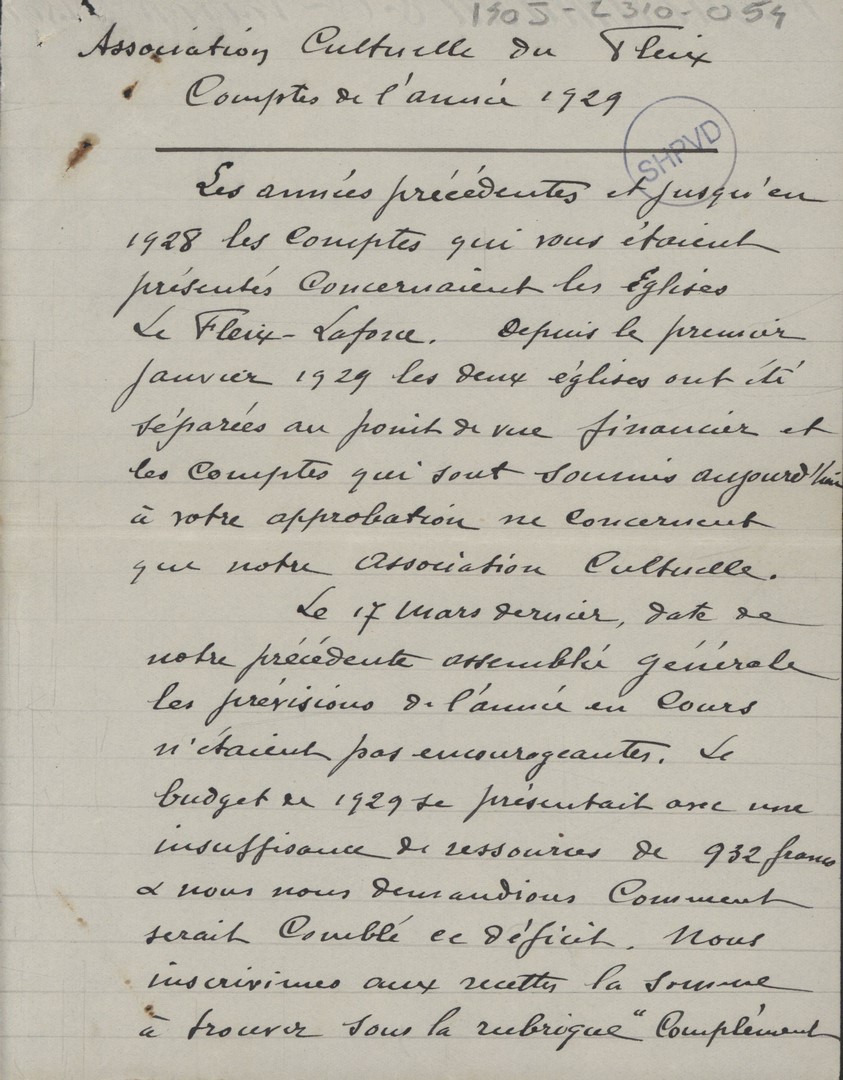 1905-2310-054
Association Culturelle du Fleix
Comptes de l'année 1929
SHPVD
Les années précédentes et jusqu'en
1928 les Comptes qui vous étaient
présentés Concernaient les Eglises
Le Fleix-Laforce. Depuis le premier
janvier 1929 les deux églises ont été
séparées au point de vue financier et
les Comptes qui sont soumis aujourd'hui
à votre approbation ne Concernent
que notre Association Cultuelle.
Le 17 Mars dernier, date de
notre précédente assemblée générale
les prévisions de l'année en Cours
n'étaient pas encourageantes. Le
budget de 1929 se présentait avec une
insuffisance de ressources de 932 francs
& nous nous demandions Comment
serait Comblé ce déficit. Nous
inscrivimes aux recettes la somme
à trouver sous la rubrique "Complément